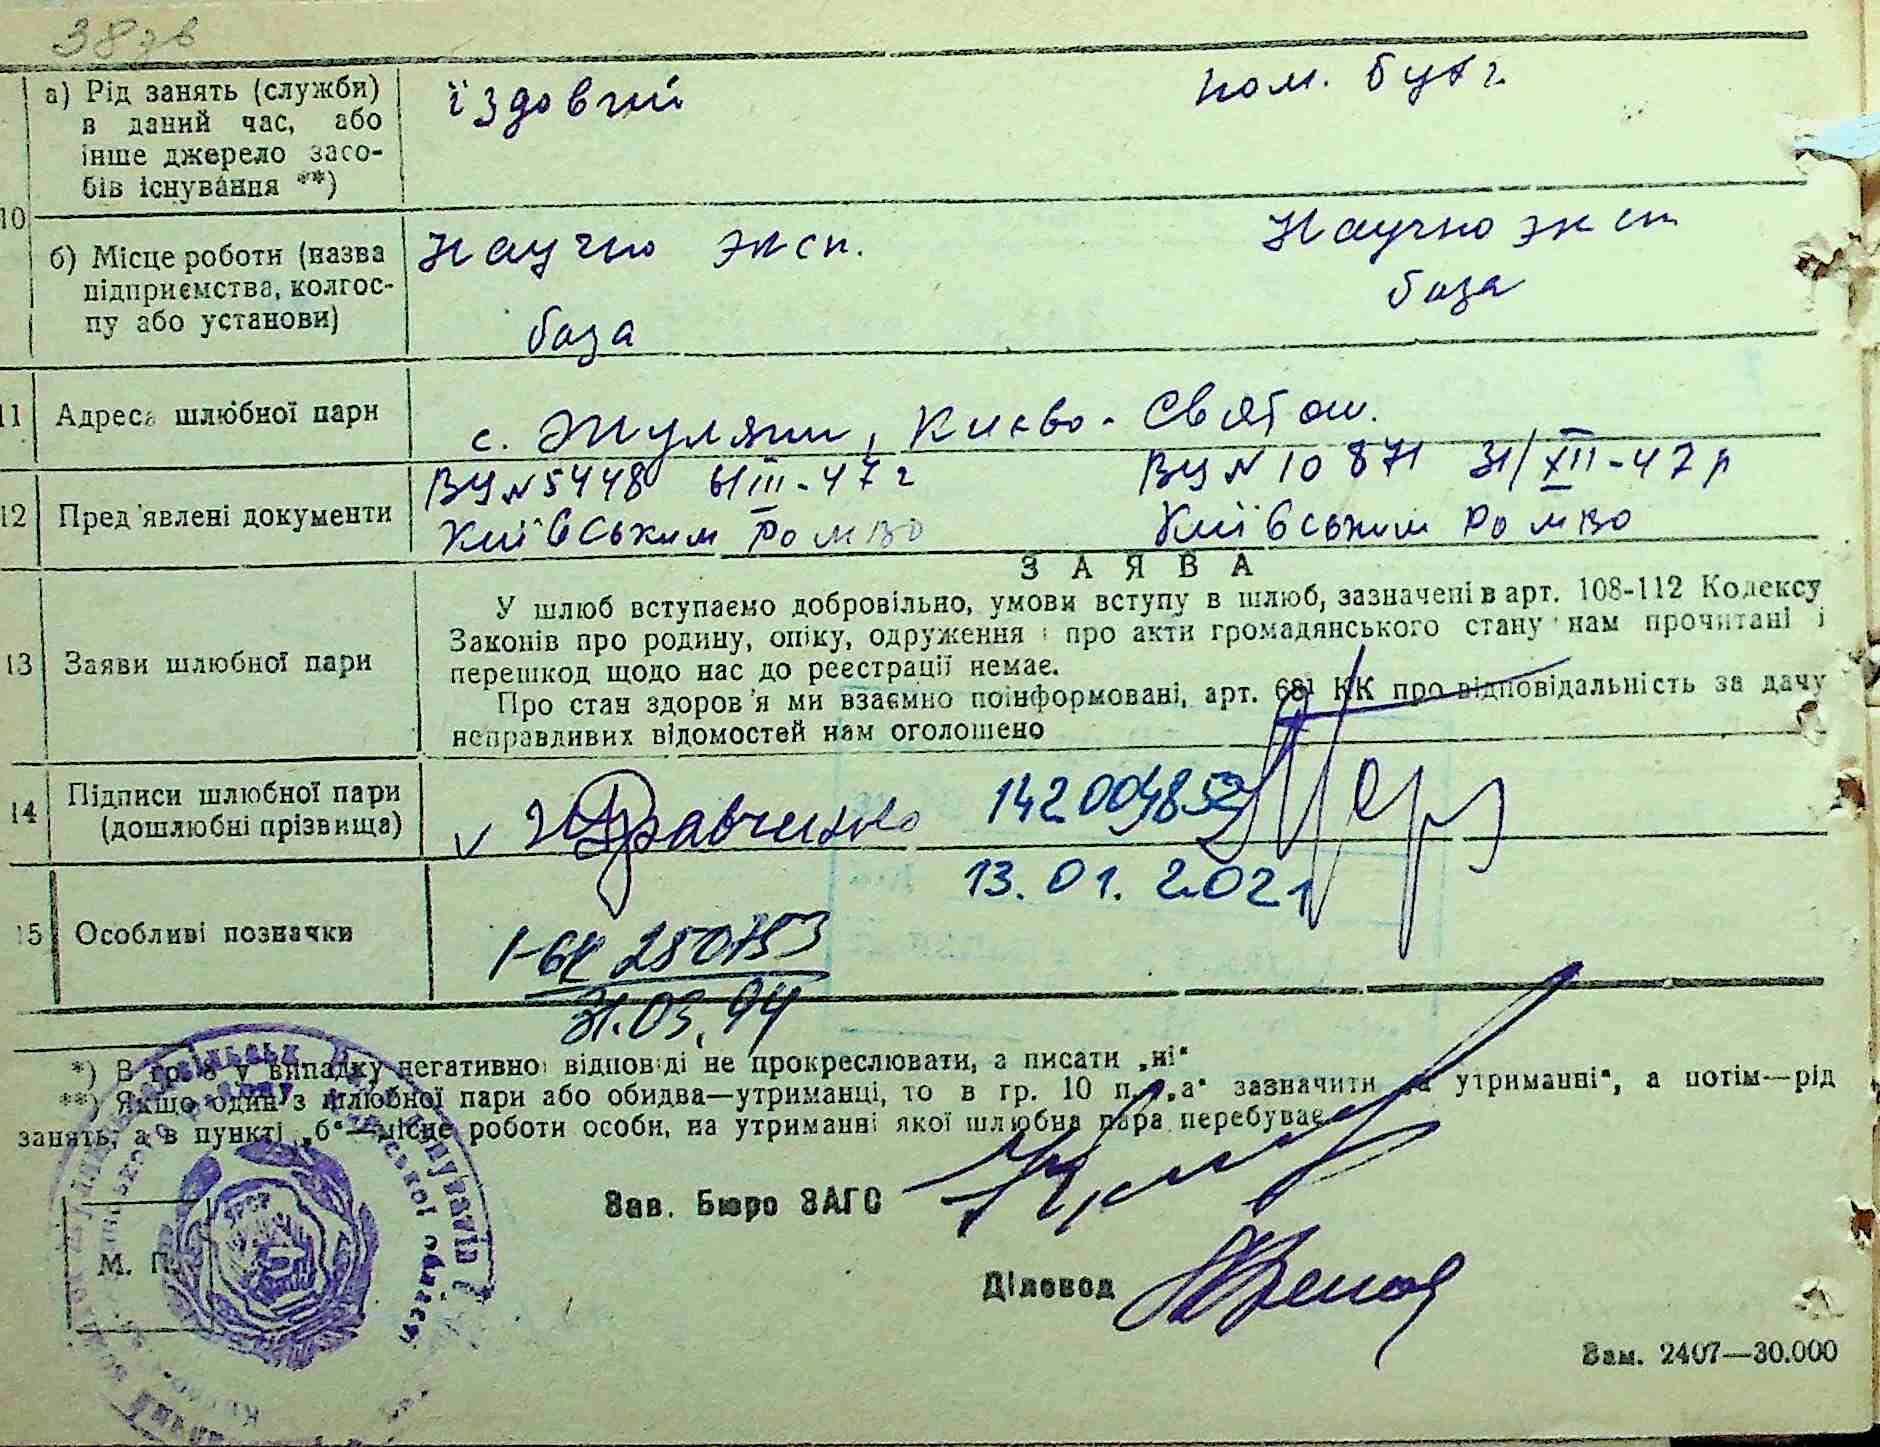 38зв
а) Рід занять (служби)
в даний час, або
інше джерело засо-
бів існування **)
їздовий
пом. бухг
10
б) Місце роботи (назва
підприємства, колгос-
пу або установи)
Научно эксп.
база
Научно эксп
база
11
Адреса шлюбної пари
с. Жуляни, Києво-Святош.
12
Пред'явлені документи
ВУ № 5448 III-47 г
Київським
ВУ № 10871 31/XII-47 р
Київським
13
Заяви шлюбної пари
ЗАЯВА
У шлюб вступаємо добровільно, умови вступу в шлюб, зазначені в арт. 108-112 Кодексу
Законів про родину, опіку, одруження і про акти громадянського стану нам прочитані і
перешкод щодо нас до реєстрації немає.
Про стан здоров'я ми взаємно поінформовані, арт. 681 КК про відповідальність за дачу
неправдивих відомостей нам оголошено
14
Підписи шлюбної пари
(дошлюбні прізвища)
v Кравченко
142004852
13.01.2021
15
Особливі позначки
І-БК 250753
31.03.94
*) В гр. 8 у випадку негативної відповіді не прокреслювати, а писати „ні“
**) Якщо один з шлюбної пари або обидва—утриманці, то в гр. 10 п. „а“ зазначити на утриманні“, а потім—рід
занять, а в пункті „б“—місце роботи особи, на утриманні якої шлюбна пара перебуває.
Зав. Бюро ЗАГС
М. П.
УРСР
Діловод
Зам. 2407—30.000